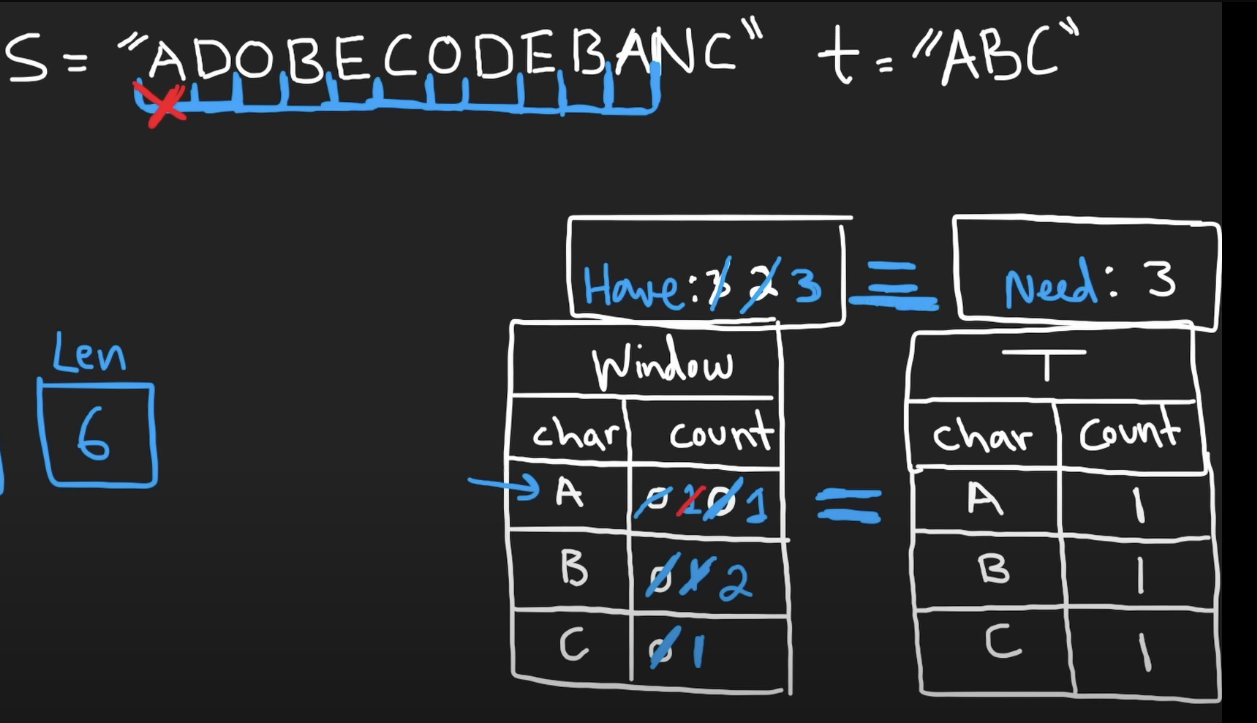 S = "ADOBECODEBANC" t = "ABC"
Have: 3 2 3 = Need: 3
Len
6
Window
char count
A 0 1 0 1
B 0 1 2
C 0 1
=
T
char Count
A 1
B 1
C 1